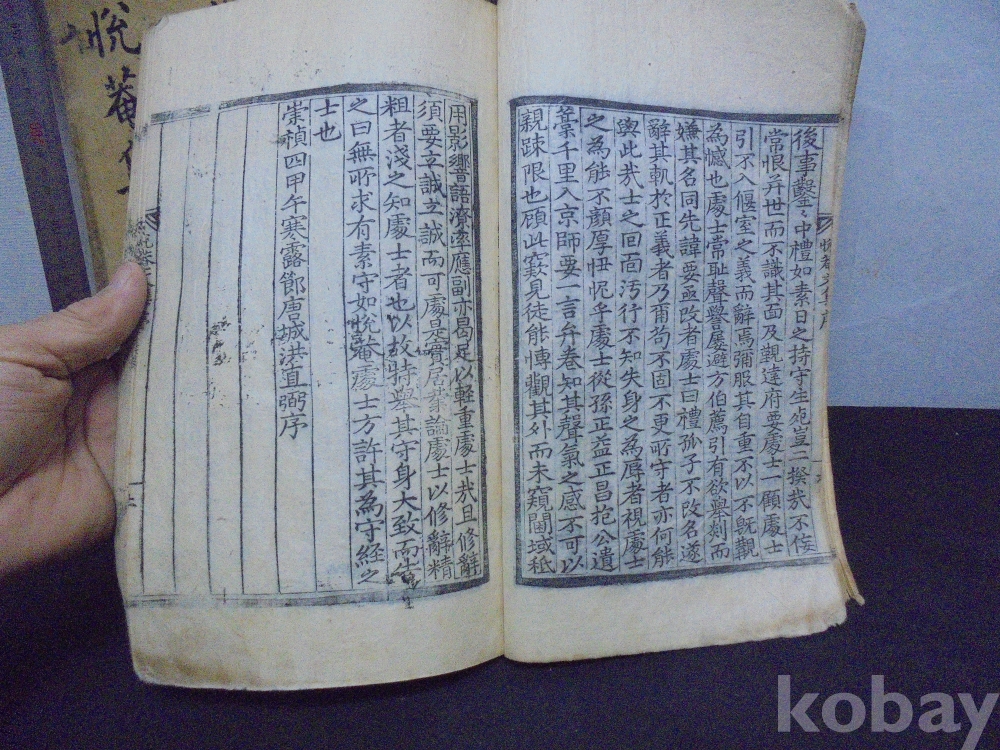 後事鑿〻中禮如素日之持守生死豈二揆㢤不佞
常恨并世而不識其面及觀達府要處士一顧處士
引不入偃室之義而辭焉彌服其自重不以旣觀
為憾也處士常耻聲譽屢避方伯薦引有欲舉剡而
嫌其名同先諱要亟改者處士曰禮孫子不改名遂
辭其軌於正義者乃爾苟不固不更所守者亦何能
與此㢤士之回面汚行不知失身之為辱者視處士
之為能不顔厚忸怩乎處士從孫正益正昌抱公遺
藁千里入京師要一言弁卷知其聲氣之感不可以
親踈限也顧此窾見徒能慱觀其外而未窺閫域秪
用影響語濟率應副亦曷足以輕重處士㢤且修辭
須要立誠立誠而可處是實居業論處士以修辭精
粗者淺之知處士者也以故特舉其守身大致而
之曰無所求有素守如悅菴處士方許其為守經之
士也
崇禎四甲午寒露節唐城洪直弼序
悅菴
kobay